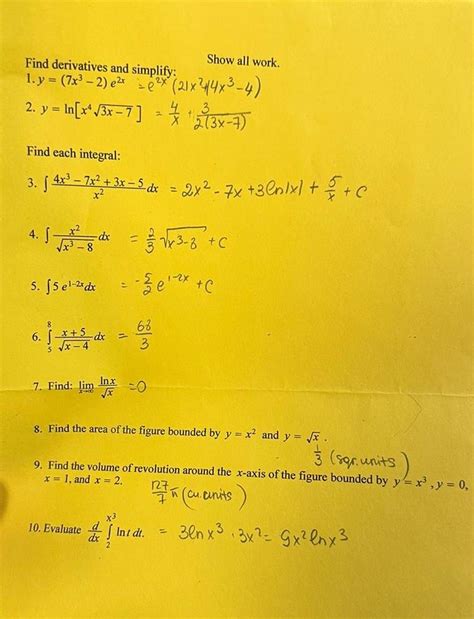 Show all work.
Find derivatives and simplify:
1. y = (7x³ – 2) e²ˣ = e²ˣ (21x²+14x³-4)
2. y = ln[x⁴√(3x – 7)] = 4/x + 3/(2(3x-7))
Find each integral:
3. ∫ (4x³ – 7x² + 3x – 5)/x² dx = 2x² - 7x + 3ln|x| + 5/x + C
4. ∫ x²/√(x³ – 8) dx = 2/3 √(x³-8) + C
5. ∫ 5 e¹⁻²ˣ dx = -5/2 e¹⁻²ˣ + C
6. ∫₅⁸ (x + 5)/√(x – 4) dx = 68/3
7. Find: lim x→∞ ln x/√x = 0
8. Find the area of the figure bounded by y = x² and y = √x .
1/3 (sqr. units)
9. Find the volume of revolution around the x-axis of the figure bounded by y = x³ , y = 0,
x = 1, and x = 2.
127/7 π (cu. units)
10. Evaluate d/dx ∫₂^x³ ln t dt. = 3lnx³ · 3x² = 9x² lnx³